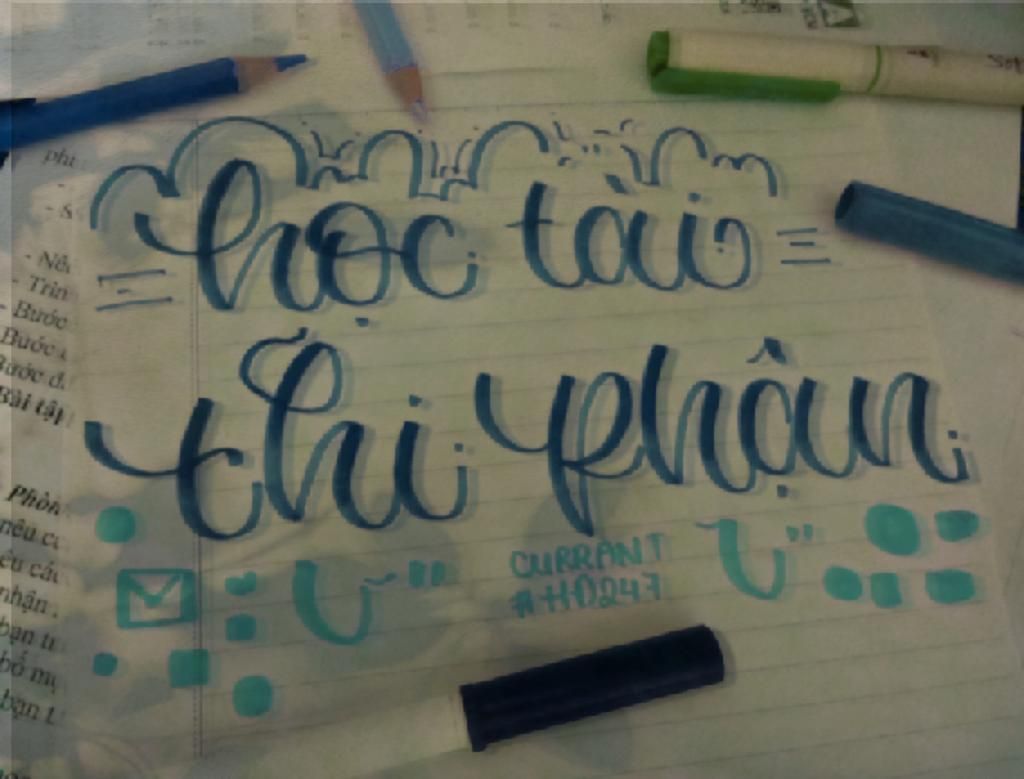 học tài
thi phận
CURRANT
#HD247
phi
- Nêu
- Trìn
- Bước
Bước
Bước d
Bài tập
Phòn
nêu c
êu các
nhận
bạn t
bố m
bạn t